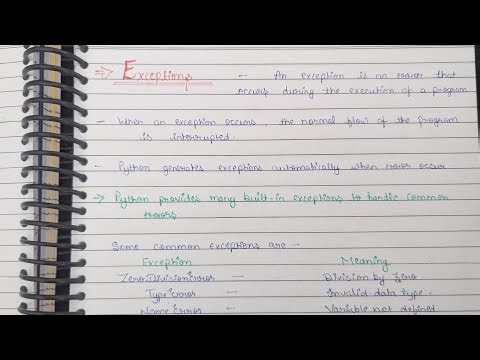 ⇒ Exceptions - An exception is an error that
occurs during the execution of a program
- When an exception occurs the normal flow of the program
is interrupted.
- Python generates exceptions automatically when error occur
→ Python provides many built-in exceptions to handle common
errors
Some common exceptions are -
Exception Meaning
ZeroDivisionError - Division by zero
TypeError - Invalid data type.
NameError - Variable not defined